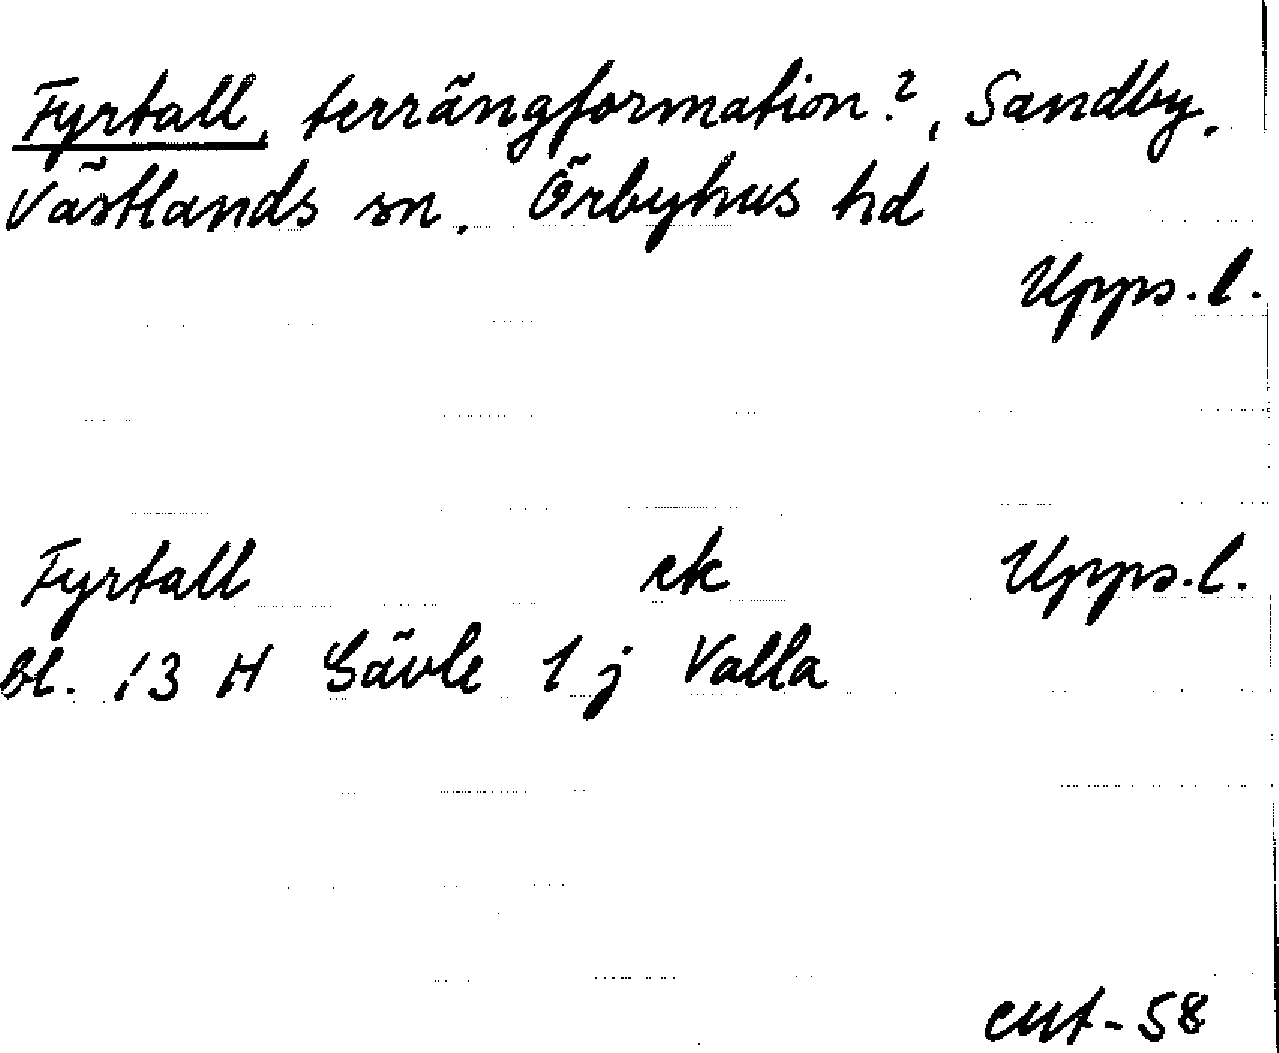 Fyrtall, terrängformation?, Sandby,
Västlands sn. Örbyhus hd
Upps. l.
Fyrtall ek Upps. l.
bl. 13 H Gävle 1 j Valla
-58